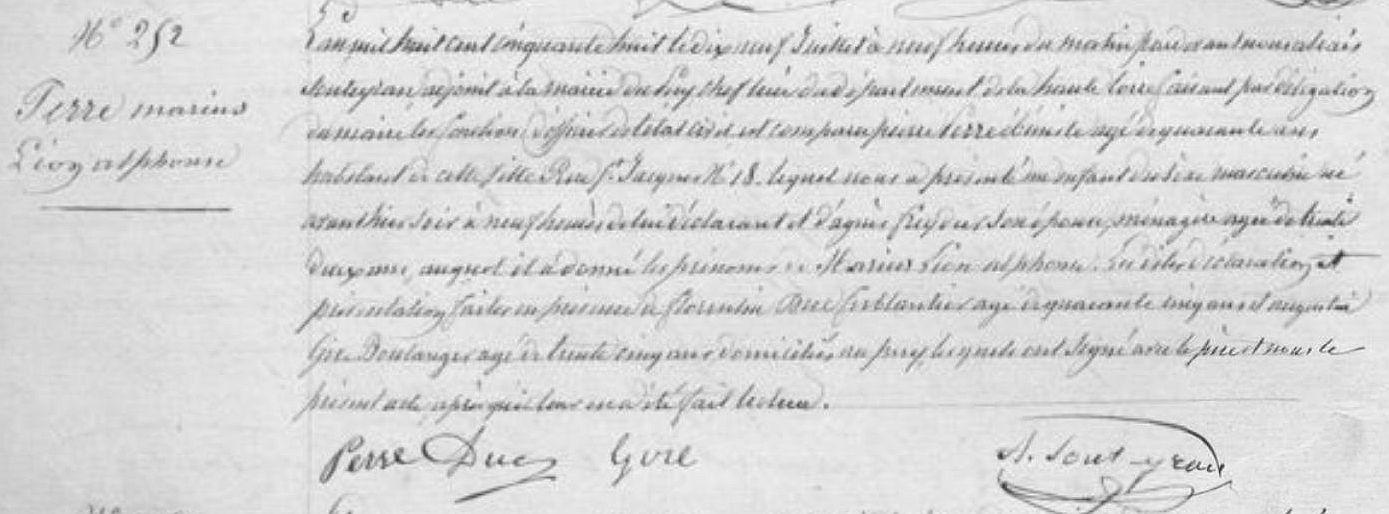 N° 252
Perre marius
Léon alphonse
L'an mil huit cent cinquante huit le dix neuf Juillet à neuf heures du matin par devant nous
Souteyran adjoint à la mairie du Puy chef lieu du département de la haute loire faisant par délégation
du maire les fonctions d'officier de l'état civil, est comparu pierre Perre ébéniste agé de quarante ans
habitant de cette Ville Rue St Jacques N° 18. lequel nous a présenté un enfant du sexe masculin né
avant hier soir à neuf heures de lui déclarant et d'agnès son épouse, ménagère agée de trente
deux ans, auquel il a donné les prénoms de Marius Léon alphonse. Les dites déclaration et
présentation faites en présence de florentin Duc ferblantier agé de quarante cinq ans et augustin
Gire Boulanger agé de trente cinq ans domiciliés au puy, lesquels ont signé avec le père et nous le
présent acte, après que leur en a été fait lecture.
Perre Duc Gire A. Souteyran